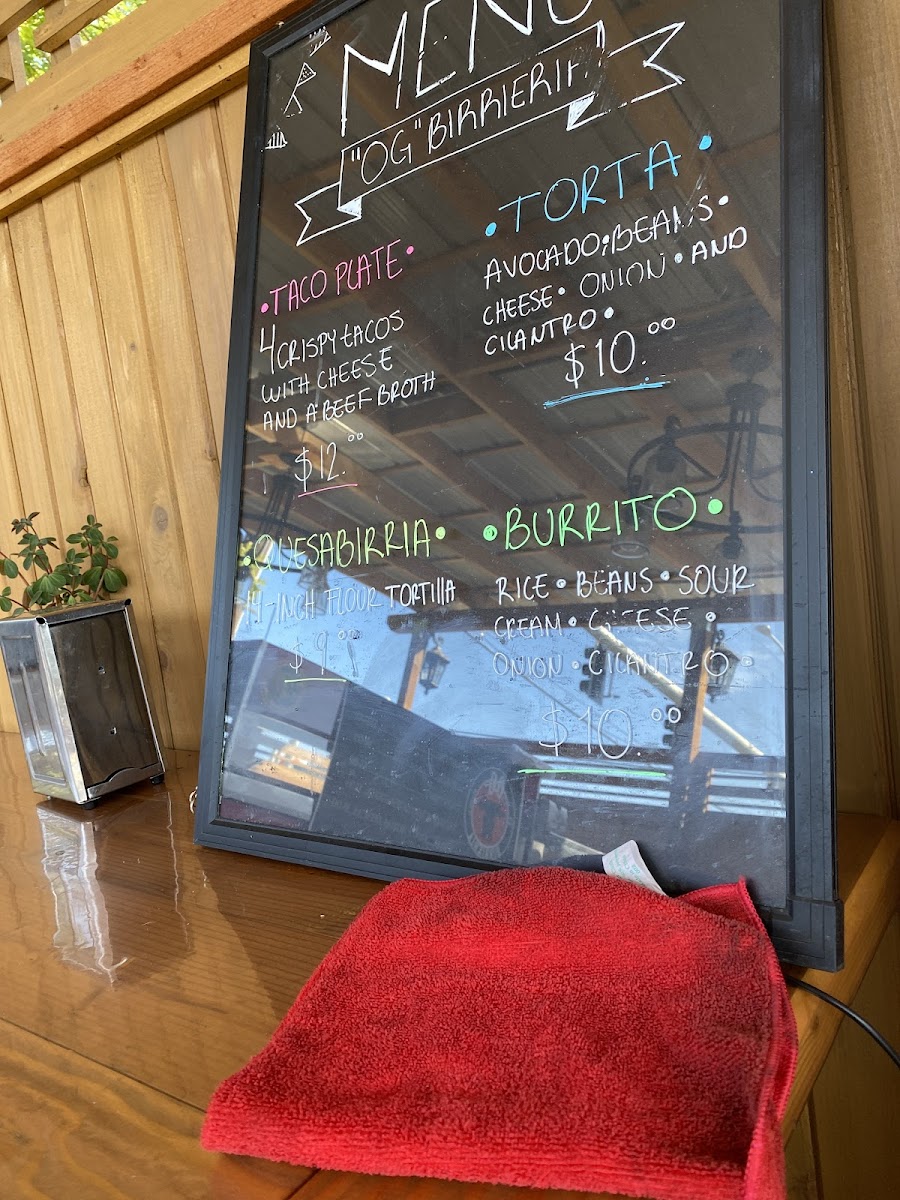 MENU
"OG" BIRRIERIA
• TACO PLATE •
4 CRISPY tACOS
WITH CHEESE
AND A BEEF BROTH
$12.00
• TORTA •
AVOCADO • BEANS •
CHEESE • ONION • AND
CILANTRO •
$10.00
• QUESABIRRIA •
14-INCH FLOUR TORTIllA
$9.99
• BURRITO •
RICE • BEANS • SOUR
CREAM • CHEESE •
ONION • CILANTRO •
$10.00